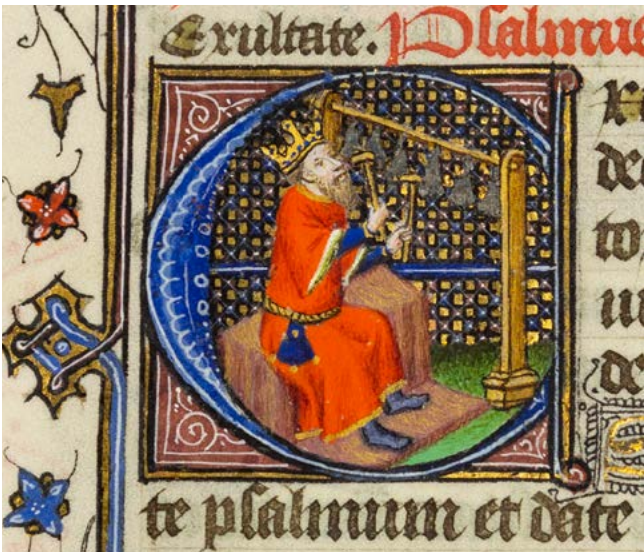 Exultate. Psalmus
de
to
de
te psalmum et date